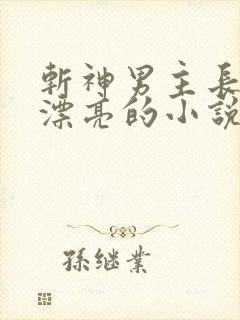 斬神男主長
漂亮的小說
孫继業